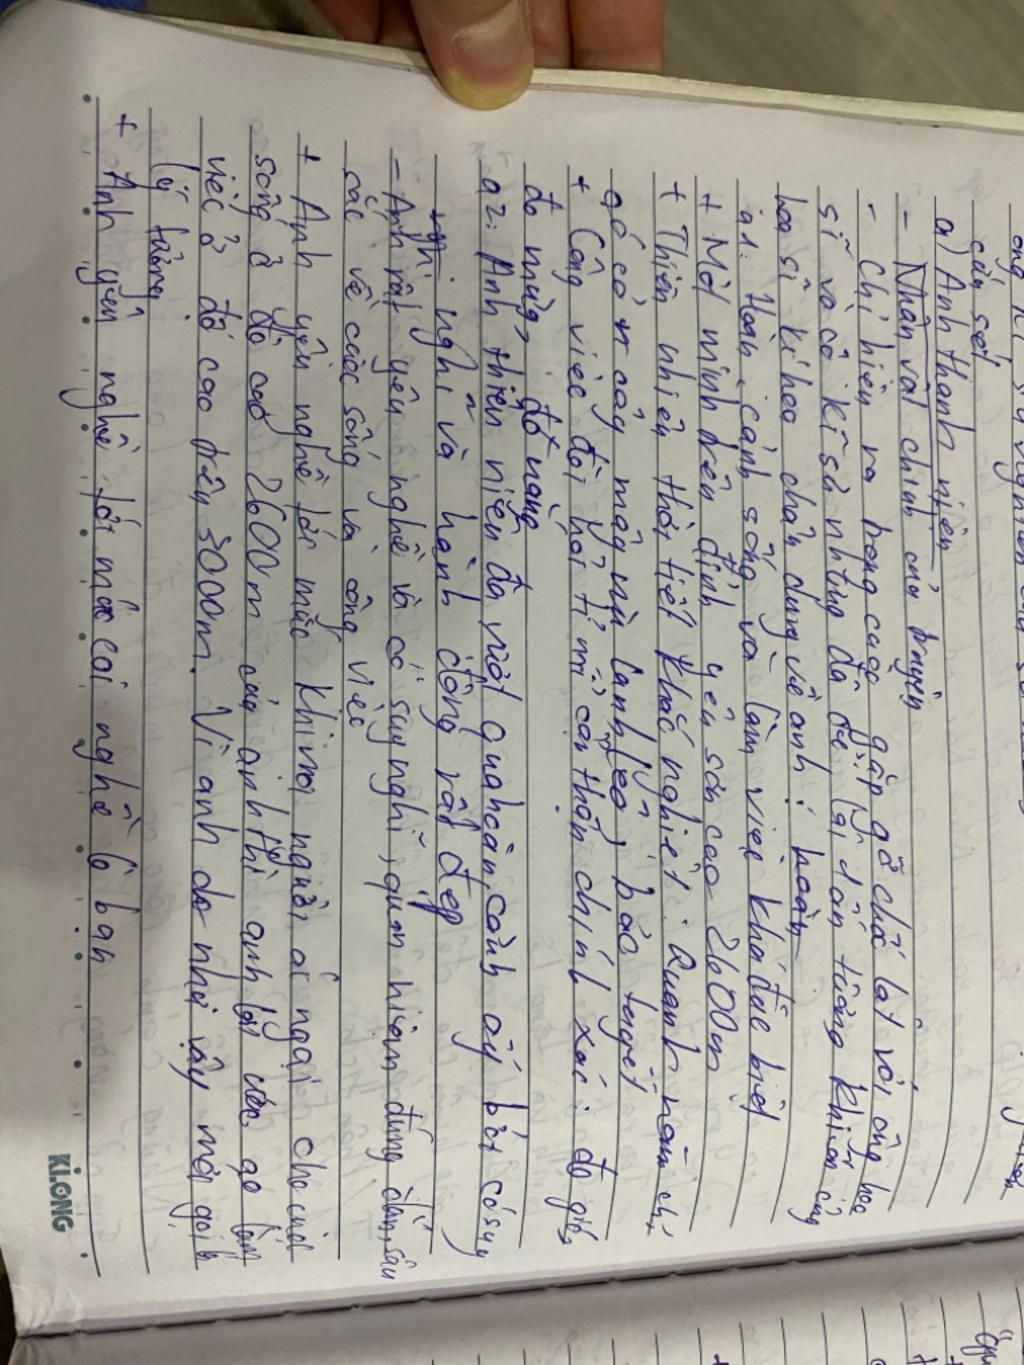 cán sét
a) Anh thanh niên
- Nhân vật chính của truyện
- Chỉ hiện ra trong cuộc gặp gỡ chốc lát với ông họa
sĩ và cô kĩ sư nhưng đã để lại ấn tượng khiến ông
hoạ sĩ kí hoạ chân dung về anh: hoàn
a1. Hoàn cảnh sống và làm việc khá đặc biệt
+ Một mình trên đỉnh yên sơn cao 2600m
+ Thiên nhiên thời tiết khắc nghiệt: Quanh năm chỉ
có cỏ cây mây mù lạnh lẽo, bão tuyết
+ Công việc đòi hỏi tỉ mỉ cẩn thận chính xác: đo gió,
đo mưa, đo nắng
a2: Anh thiên niên đã vượt qua hoàn cảnh ấy bởi có suy
nghĩ và hành động rất đẹp
- Anh rất yêu nghề và có suy nghĩ, quan niệm đúng đắn, sâu
sắc về cuộc sống và công việc
+ Anh yêu nghề tới mức khi mọi người ái ngại cho cuộc
sống ở độ cao 2600m của anh thì anh lại ước ao làm
việc ở độ cao trên 3000m. Vì anh do như vậy mới gọi là
lý tưởng
+ Anh yêu nghề tới mức coi nghề là bạn
KLONG